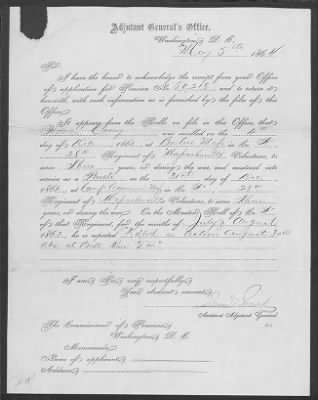 Adjutant General's Office,
Washington, D. C.
May 5th 1864
Sir:
I have the honor to acknowledge the receipt from your Office
of application for Pension No. and to return it
herewith, with such information as is furnished by the files of this
Office.
It appears from the Rolls on file in this Office, that
was enrolled on the
day of 1861 at Boston Mass in Co.
28th Regiment of Massachusetts Volunteers, to
serve three years, or during the war, and mustered into
service as a Private on the day of Dec
1861, at Camp Cameron Ms in Co. 28th
Regiment of Massachusetts Volunteers, to serve three
years, or during the war. On the Muster Roll of Co.
of that Regiment, for the months of July & August
1862, he is reported Killed in action August 30th
1862 at Bull Run
I am, Sir, very respectfully,
Your obedient servant,
Assistant Adjutant General
The Commissioner of Pensions,
Washington, D. C.
Memoranda:
Name of applicant
Address